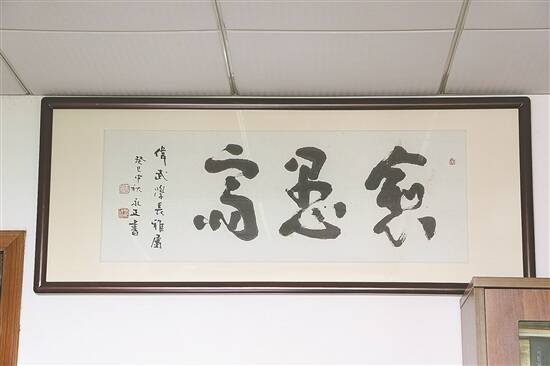 愈愚齋
偉武學長雅屬
癸巳中秋永正書